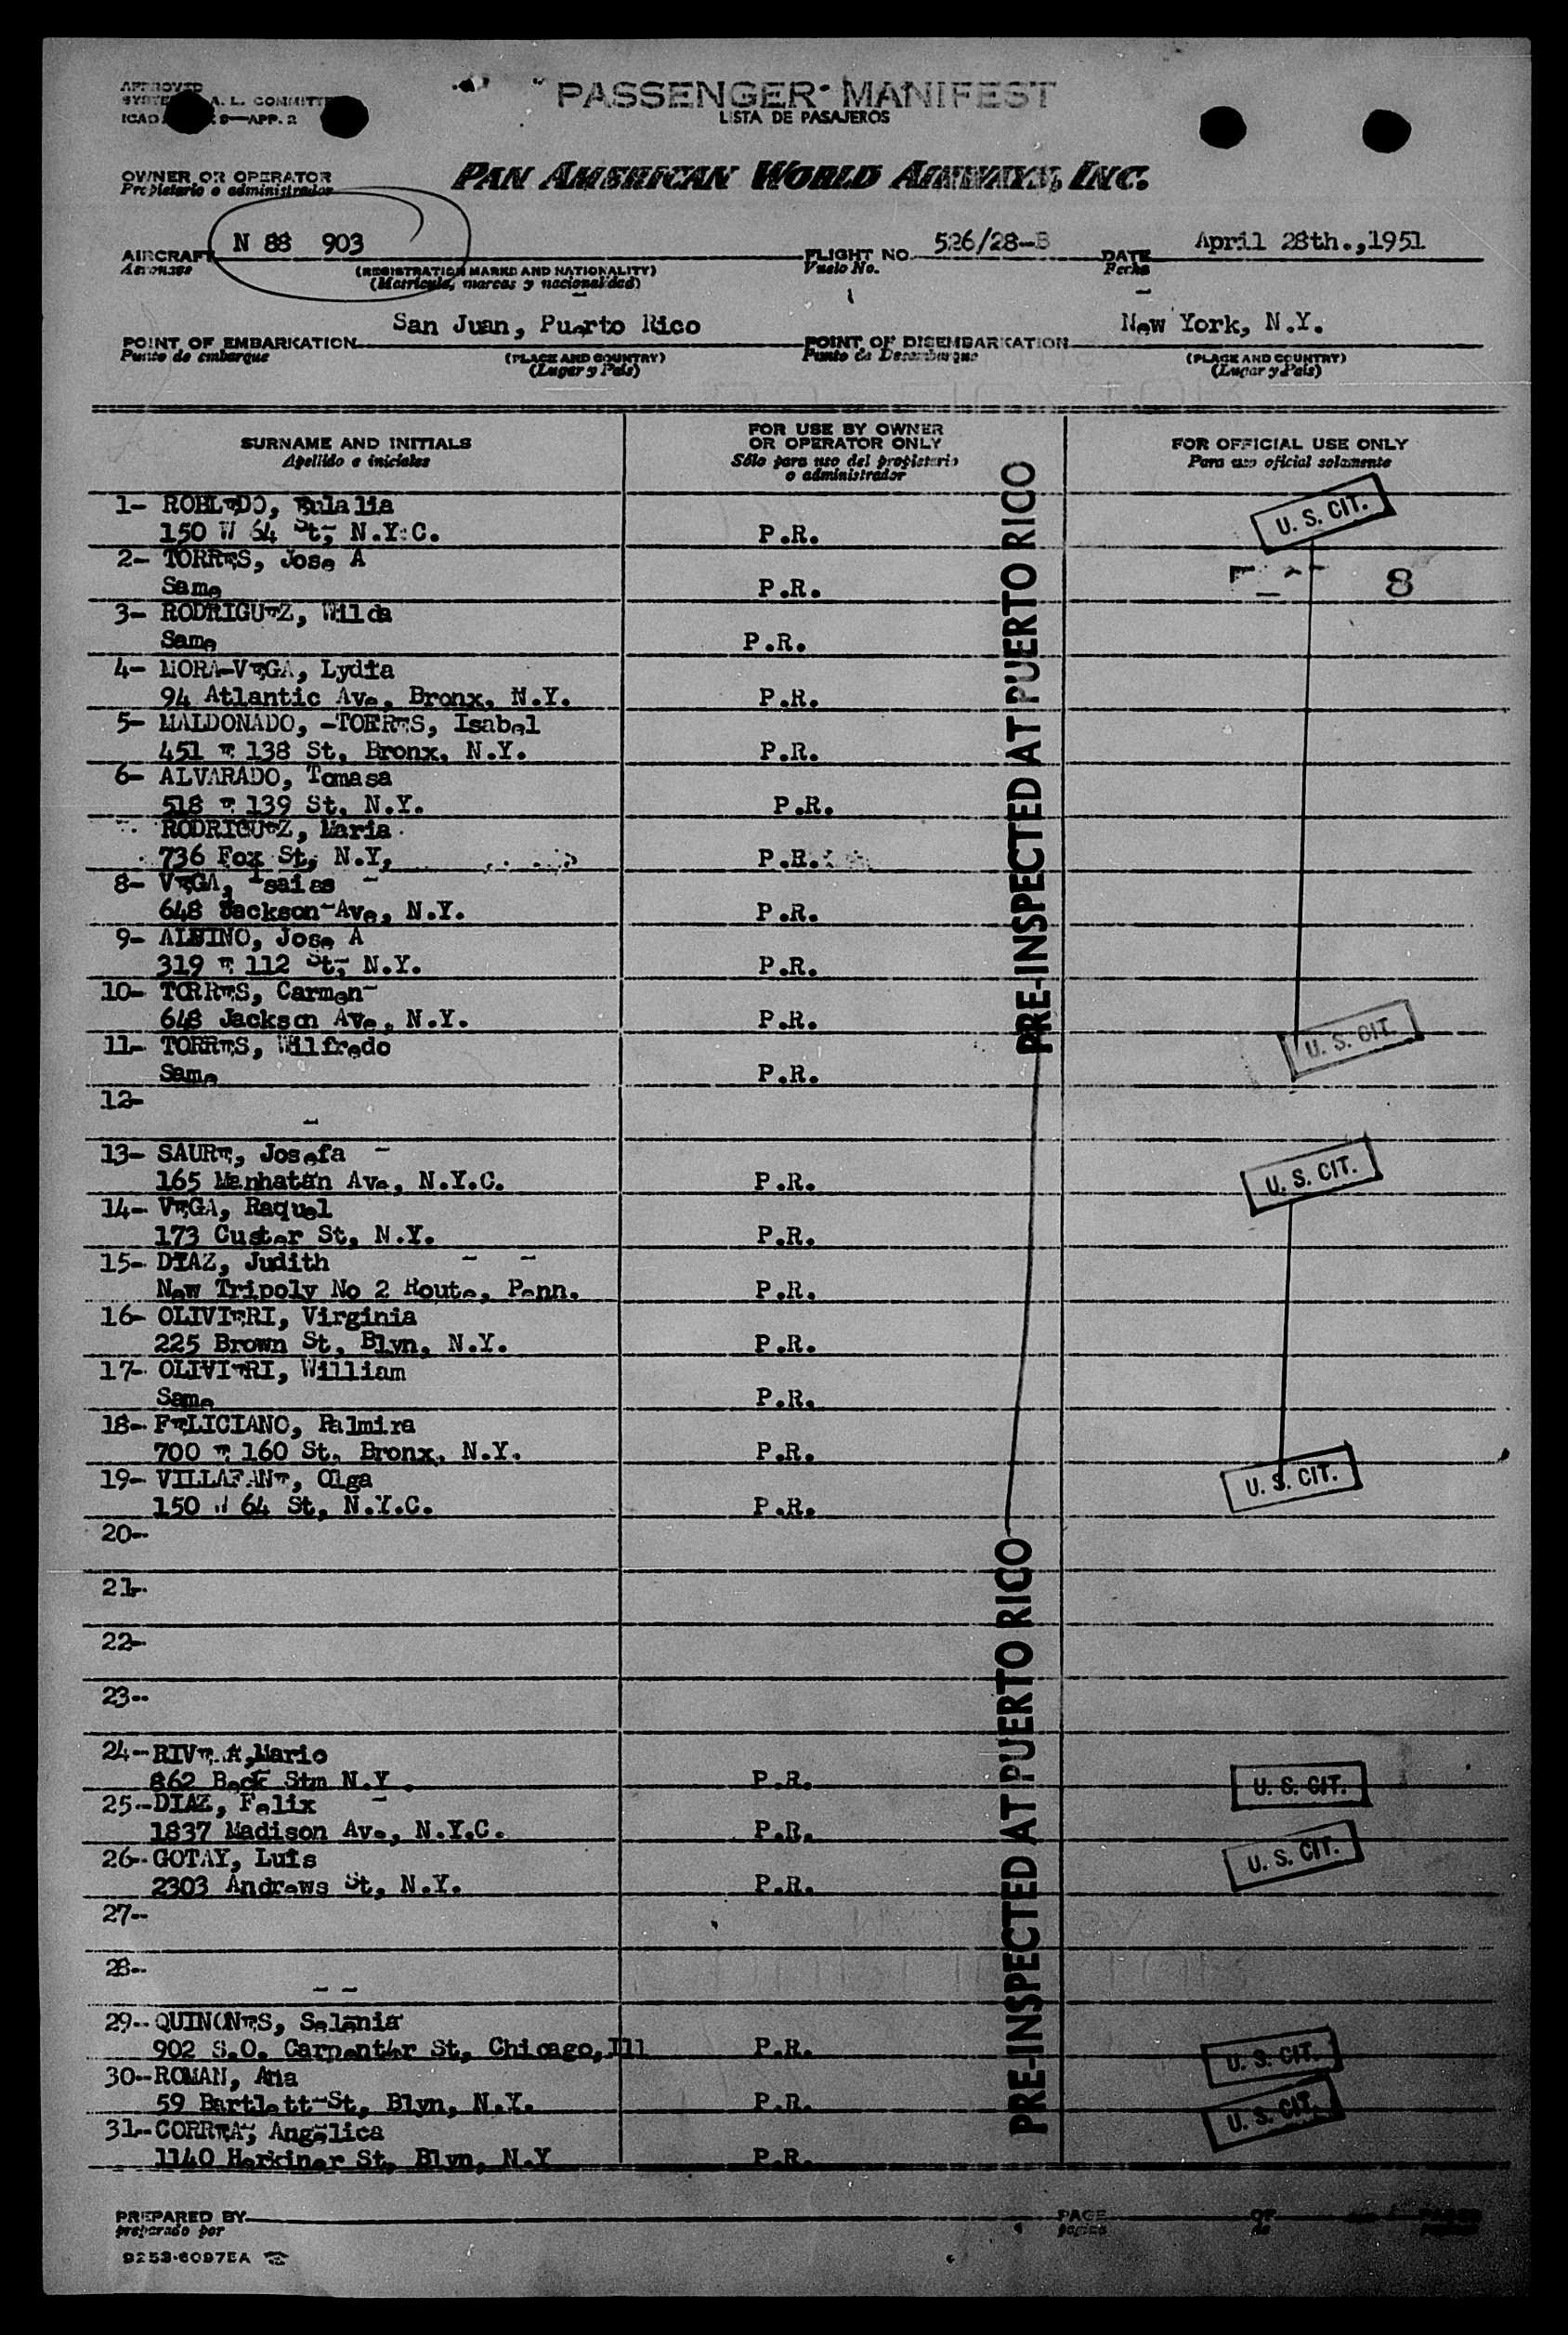 APPROVED
A. L. COMMITT
ICAO 9—APP. 2
PASSENGER MANIFEST
LISTA DE PASAJEROS
OWNER OR OPERATOR
Propietario o administrador
PAN AMERICAN WORLD AIRWAYS, INC.
AIRCRAFT N 88 903 FLIGHT NO. 526/28-B DATE April 28th.,1951
Aeronave (REGISTRATION MARKS AND NATIONALITY) Vuelo No. Fecha
(Matrícula, marcas y nacionalidad)
POINT OF EMBARKATION San Juan, Puerto Rico POINT OF DISEMBARKATION New York, N.Y.
Punto de embarque (PLACE AND COUNTRY) Punto de Desembarque (PLACE AND COUNTRY)
(Lugar y País) (Lugar y País)
SURNAME AND INITIALS
Apellido e iniciales
FOR USE BY OWNER
OR OPERATOR ONLY
Sólo para uso del propietario
o administrador
FOR OFFICIAL USE ONLY
Para uso oficial solamente
1- ROBLEDO, Eulalia
150 W 64 St, N.Y.C. P.R. U. S. CIT.
2- TORRES, Jose A
Same P.R. 8
3- RODRIGUEZ, Wilda
Same P.R.
4- MORA-VEGA, Lydia
94 Atlantic Ave, Bronx, N.Y. P.R.
5- MALDONADO, -TORRES, Isabel
451 E 138 St, Bronx, N.Y. P.R.
6- ALVARADO, Tomasa
518 E 139 St, N.Y. P.R.
RODRIGUEZ, Maria
736 Fox St, N.Y, P.R.
8- VEGA, Isaias
648 Jackson Ave, N.Y. P.R.
9- ALBINO, Jose A
319 E 112 St, N.Y. P.R.
10- TORRES, Carmen
648 Jackson Ave, N.Y. P.R.
11- TORRES, Wilfredo U. S. CIT.
Same P.R.
12-
13- SAURE, Josefa
165 Manhatan Ave, N.Y.C. P.R. U. S. CIT.
14- VEGA, Raquel
173 Custer St, N.Y. P.R.
15- DIAZ, Judith
New Tripoly No 2 Route, Penn. P.R.
16- OLIVIERI, Virginia
225 Brown St, Blyn, N.Y. P.R.
17- OLIVIERI, William
Same P.R.
18- FELICIANO, Palmira
700 E 160 St, Bronx, N.Y. P.R.
19- VILLAFANE, Olga U. S. CIT.
150 W 64 St, N.Y.C. P.R.
20-
21-
22-
23-
24- RIVERA, Mario
862 Beck Stm N.Y. P.R. U. S. CIT.
25- DIAZ, Felix
1837 Madison Ave, N.Y.C. P.R.
26- GOTAY, Luis U. S. CIT.
2303 Andrews St, N.Y. P.R.
27-
28-
29- QUINONES, Selenia
902 S.O. Carpenter St, Chicago, Ill P.R. U. S. CIT.
30- ROMAN, Ana
59 Bartlett St, Blyn, N.Y. P.R. U. S. CIT.
31- CORREA, Angelica
1140 Herkiner St, Blyn, N.Y P.R.
PRE-INSPECTED AT PUERTO RICO
PRE-INSPECTED AT PUERTO RICO
PREPARED BY PAGE OF PAGES
preparado por página de
9253-6097EA